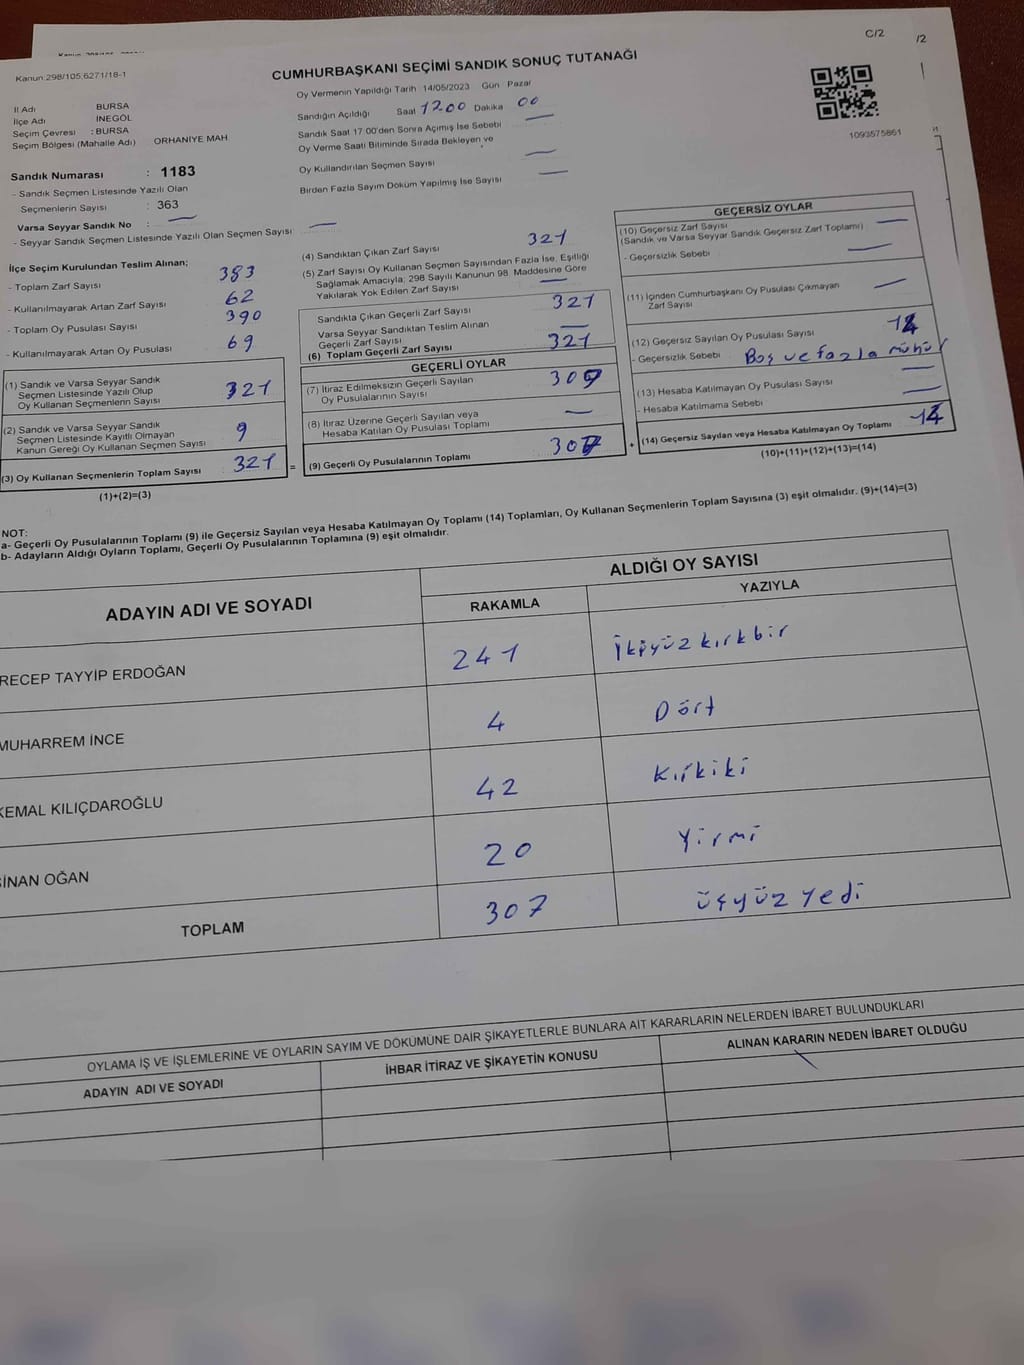 C/2
/2
Kanun 298/105,6271/18-1
CUMHURBAŞKANI SEÇİMİ SANDIK SONUÇ TUTANAĞI
İl Adı BURSA
İlçe Adı İNEGÖL
Seçim Çevresi : BURSA
Seçim Bölgesi (Mahalle Adı) ORHANİYE MAH
Sandık Numarası : 1183
- Sandık Seçmen Listesinde Yazılı Olan
Seçmenlerin Sayısı : 363
Varsa Seyyar Sandık No : —
- Seyyar Sandık Seçmen Listesinde Yazılı Olan Seçmen Sayısı —
Oy Vermenin Yapıldığı Tarih 14/05/2023 Gün Pazar
Sandığın Açıldığı Saat 1700 Dakika 00
Sandık Saat 17.00'den Sonra Açımış İse Sebebi —
Oy Verme Saati Bitiminde Sırada Bekleyen ve
Oy Kullandırılan Seçmen Sayısı —
Birden Fazla Sayım Döküm Yapılmış İse Sayısı —
1093575861
İlçe Seçim Kurulundan Teslim Alınan;
- Toplam Zarf Sayısı 383
- Kullanılmayarak Artan Zarf Sayısı 62
- Toplam Oy Pusulası Sayısı 390
- Kullanılmayarak Artan Oy Pusulası 69
(1) Sandık ve Varsa Seyyar Sandık
Seçmen Listesinde Yazılı Olup
Oy Kullanan Seçmenlerin Sayısı 321
(2) Sandık ve Varsa Seyyar Sandık
Seçmen Listesinde Kayıtlı Olmayan
Kanun Gereği Oy Kullanan Seçmen Sayısı
(3) Oy Kullanan Seçmenlerin Toplam Sayısı 321 =
(1)+(2)=(3)
(4) Sandıktan Çıkan Zarf Sayısı 321
(5) Zarf Sayısı Oy Kullanan Seçmen Sayısından Fazla İse, Eşitliği
Sağlamak Amacıyla; 298 Sayılı Kanunun 98. Maddesine Göre
Yakılarak Yok Edilen Zarf Sayısı —
Sandıkta Çıkan Geçerli Zarf Sayısı 321
Varsa Seyyar Sandıktan Teslim Alınan
Geçerli Zarf Sayısı —
(6) Toplam Geçerli Zarf Sayısı 321
GEÇERLİ OYLAR
(7) İtiraz Edilmeksizin Geçerli Sayılan
Oy Pusulalarının Sayısı
(8) İtiraz Üzerine Geçerli Sayılan veya
Hesaba Katılan Oy Pusulası Toplamı —
(9) Geçerli Oy Pusulalarının Toplamı 307 +
GEÇERSİZ OYLAR
(10) Geçersiz Zarf Sayısı —
(Sandık ve Varsa Seyyar Sandık Geçersiz Zarf Toplamı)
- Geçersizlik Sebebi —
(11) İçinden Cumhurbaşkanı Oy Pusulası Çıkmayan
Zarf Sayısı —
(12) Geçersiz Sayılan Oy Pusulası Sayısı 14
- Geçersizlik Sebebi Boş ve fazla mühür
(13) Hesaba Katılmayan Oy Pusulası Sayısı —
- Hesaba Katılmama Sebebi —
(14) Geçersiz Sayılan veya Hesaba Katılmayan Oy Toplamı 14
(10)+(11)+(12)+(13)=(14)
NOT:
a- Geçerli Oy Pusulalarının Toplamı (9) ile Geçersiz Sayılan veya Hesaba Katılmayan Oy Toplamı (14) Toplamları, Oy Kullanan Seçmenlerin Toplam Sayısına (3) eşit olmalıdır. (9)+(14)=(3)
b- Adayların Aldığı Oyların Toplamı, Geçerli Oy Pusulalarının Toplamına (9) eşit olmalıdır.
ADAYIN ADI VE SOYADI ALDIĞI OY SAYISI
RAKAMLA YAZIYLA
RECEP TAYYİP ERDOĞAN 241 ikiyüz kırkbir
MUHARREM İNCE 4 Dört
KEMAL KILIÇDAROĞLU 42 Kırkiki
SİNAN OĞAN 20 Yirmi
TOPLAM 307 üçyüz yedi
OYLAMA İŞ VE İŞLEMLERİNE VE OYLARIN SAYIM VE DÖKÜMÜNE DAİR ŞİKAYETLERLE BUNLARA AİT KARARLARIN NELERDEN İBARET BULUNDUKLARI
ADAYIN ADI VE SOYADI İHBAR İTİRAZ VE ŞİKAYETİN KONUSU ALINAN KARARIN NEDEN İBARET OLDUĞU